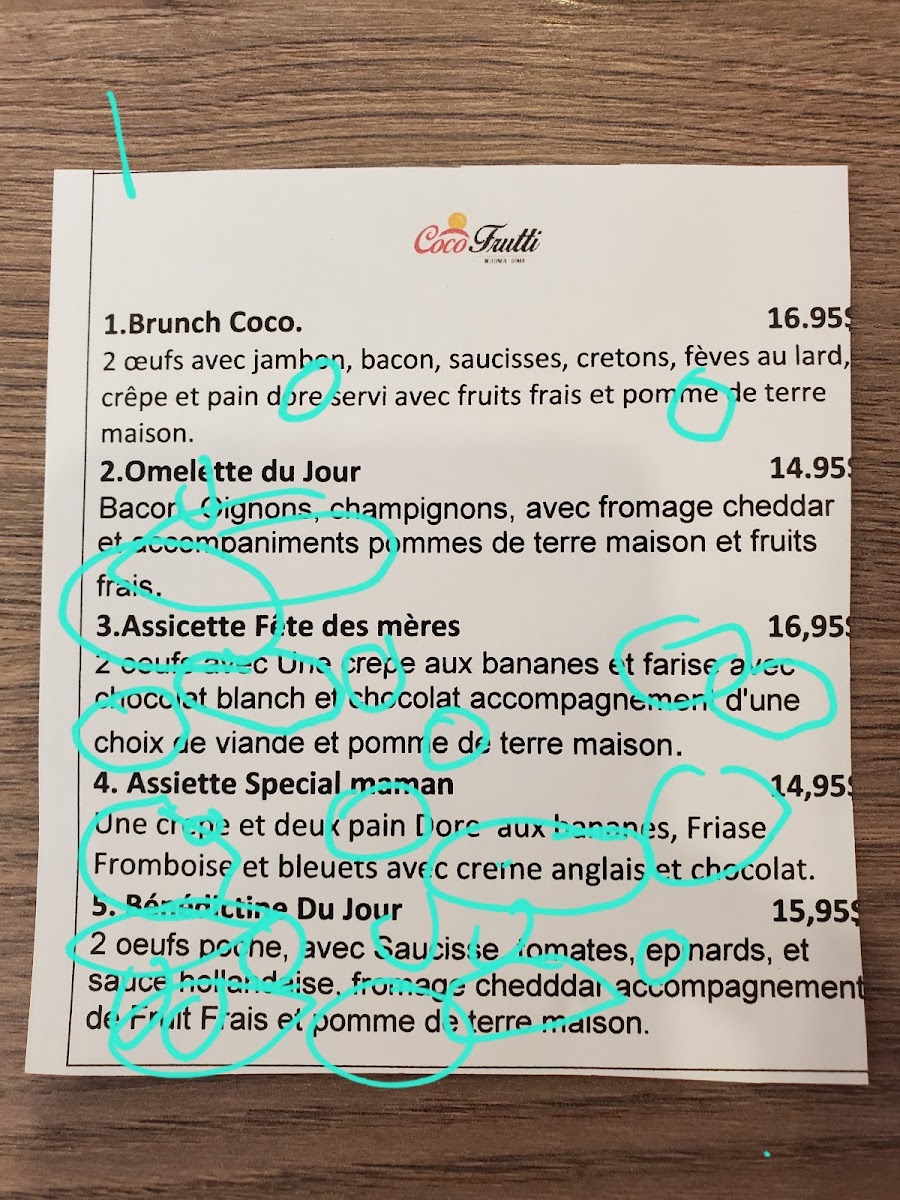 Coco Frutti
1.Brunch Coco. 16.95$
2 œufs avec jambon, bacon, saucisses, cretons, fèves au lard,
crêpe et pain dore servi avec fruits frais et pomme de terre
maison.
2.Omelette du Jour 14.95$
Bacon, Oignons, champignons, avec fromage cheddar
et accompaniments pommes de terre maison et fruits
frais.
3.Assicette Fête des mères 16,95$
2 oeufs avec Une crepe aux bananes et farise avec
chocolat blanch et chocolat accompagnement d'une
choix de viande et pomme de terre maison.
4. Assiette Special maman 14,95$
Une crepe et deux pain Dore aux bananes, Friase
Fromboise et bleuets avec creme anglais et chocolat.
5. Bénédictine Du Jour 15,95$
2 oeufs poche, avec Saucisse, Tomates, epinards, et
sauce hollandaise, fromage chedddar accompagnement
de Fruit Frais et pomme de terre maison.